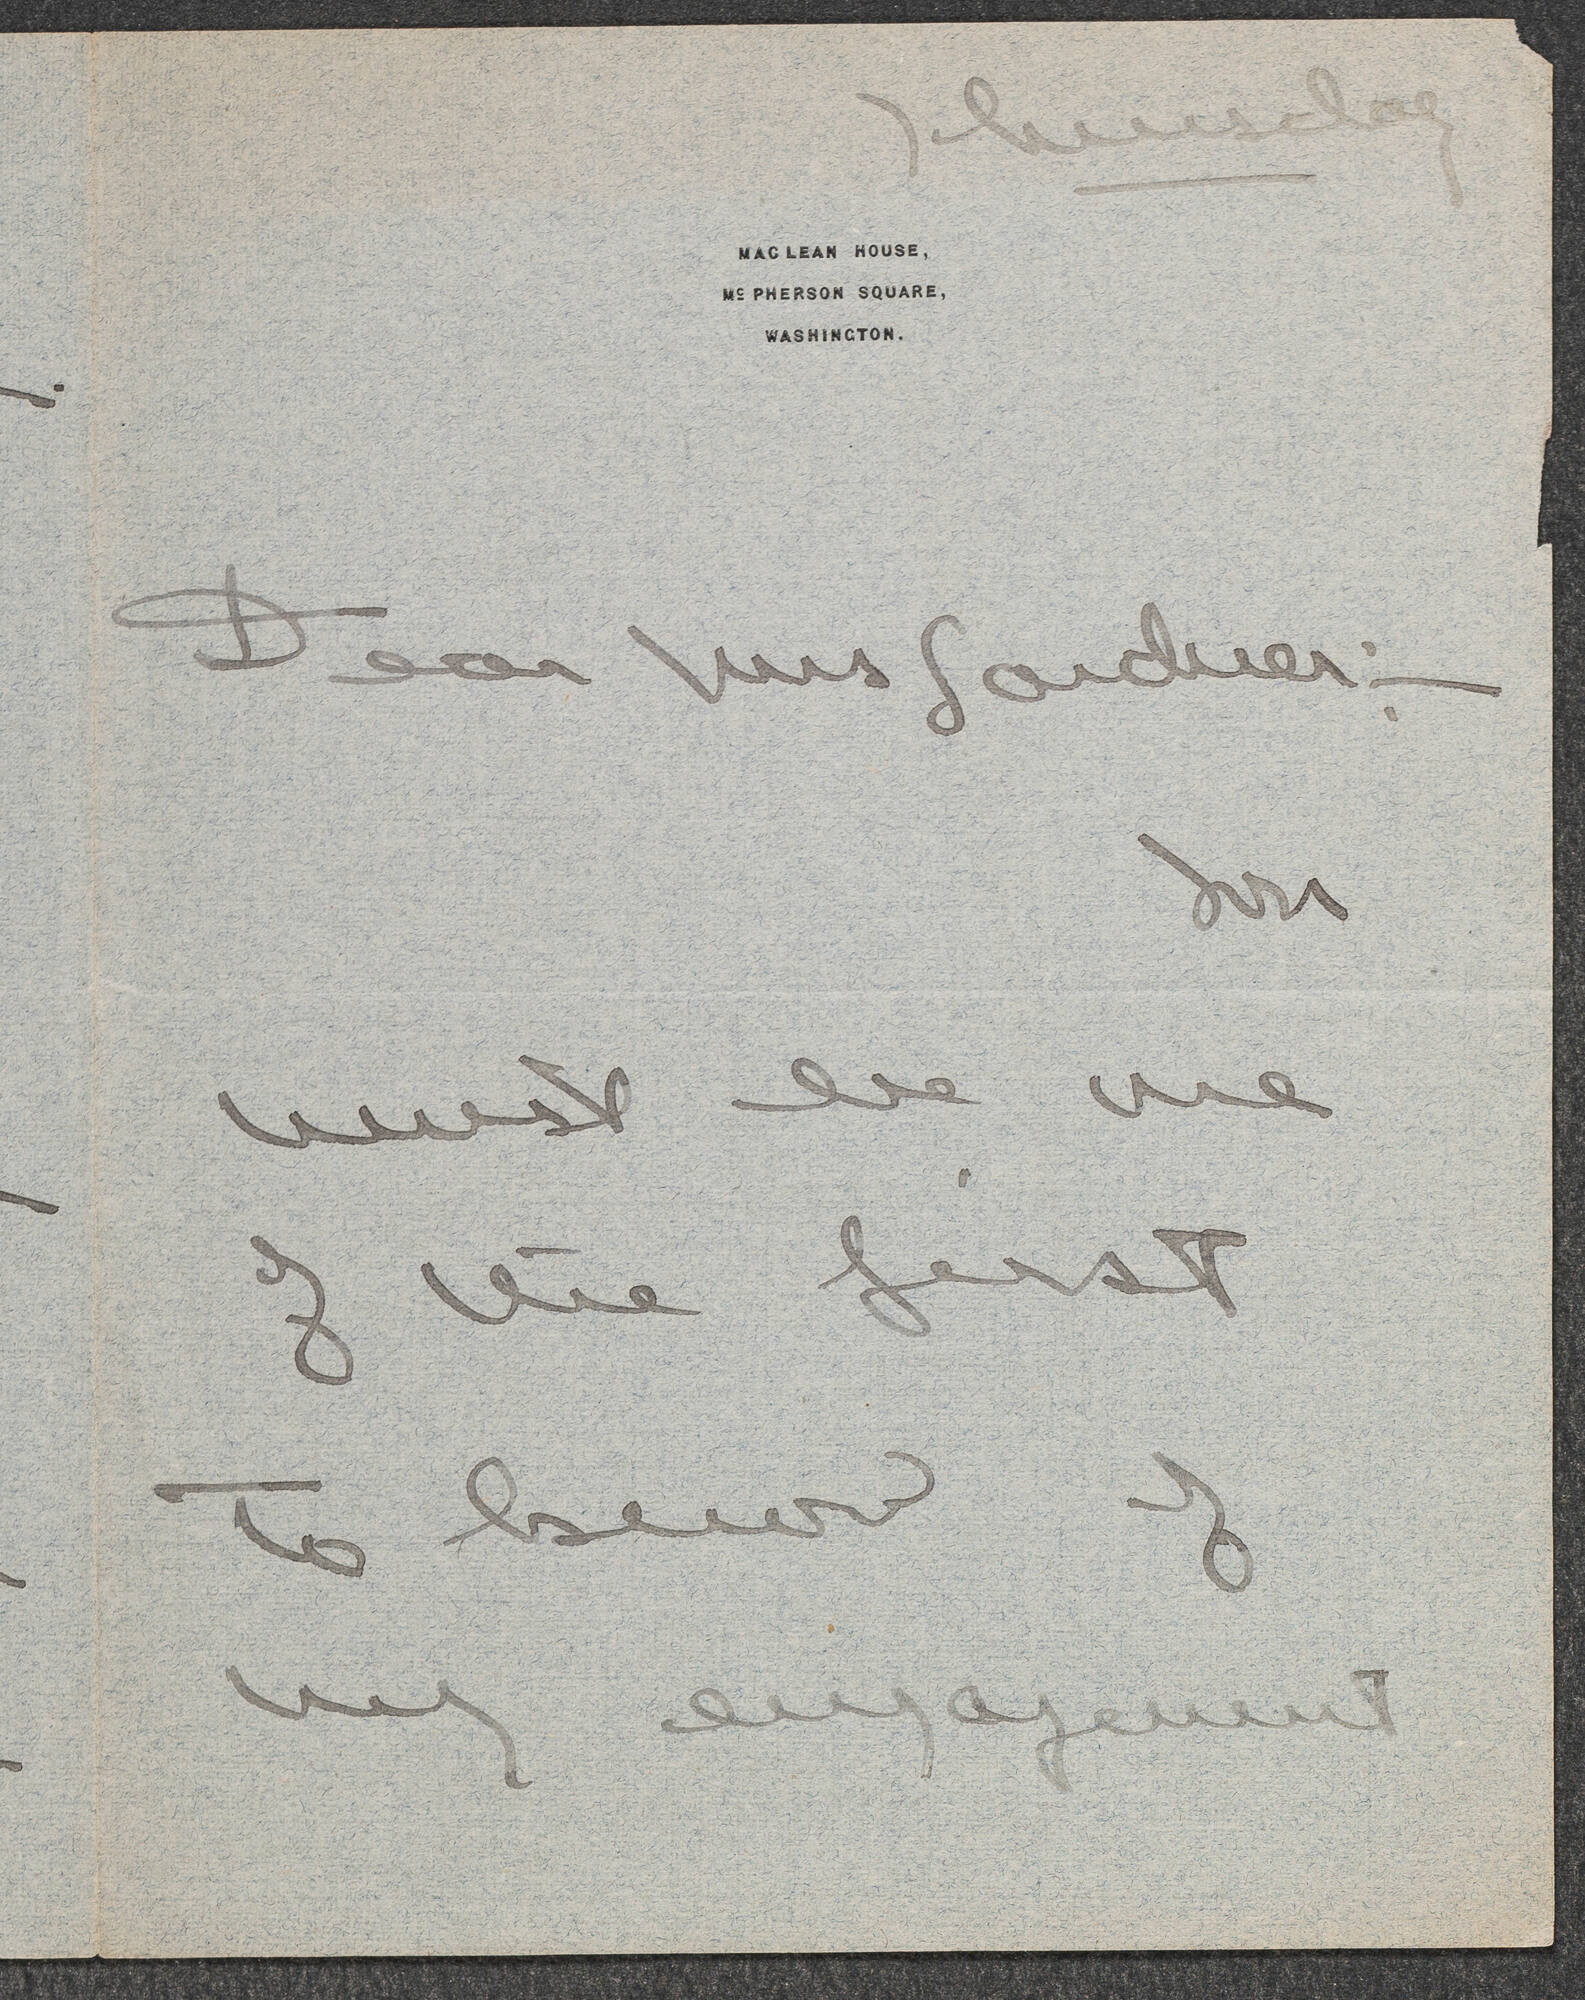 Thursday
MACLEAN HOUSE,
Mc PHERSON SQUARE,
WASHINGTON.
Dear Mrs Gardner:—
You
must be one
of the first
To know of
my engagement